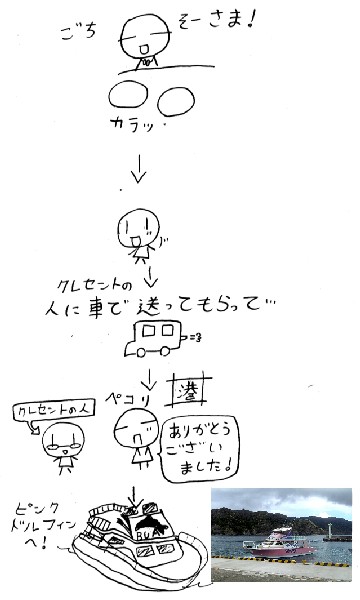 ごちそーさま!
カラッ・
クレセントの
人に車で送ってもらって…
ペコリ
港
クレセントの人
ありがとう
ござい
ました!
ピンク
ドルフィン
へ!